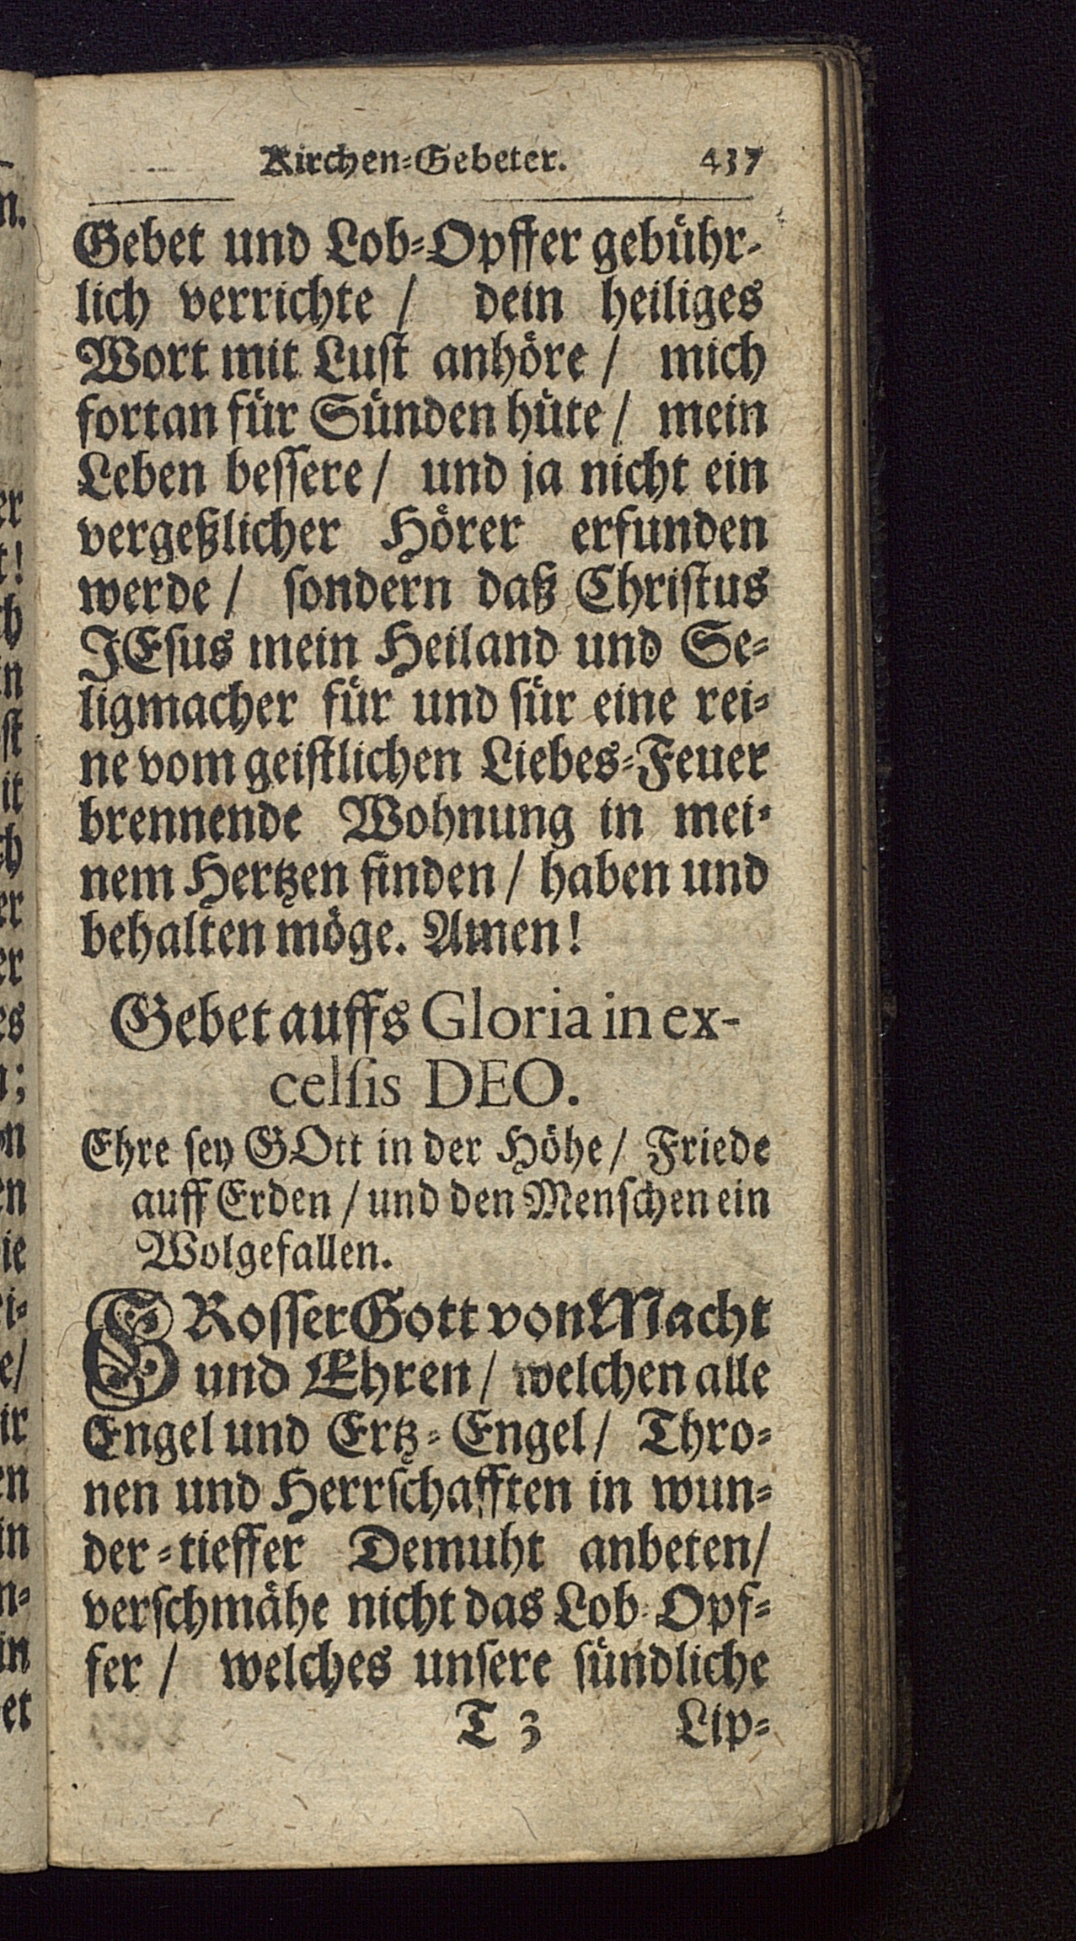 Kirchen=Gebeter. 437
Gebet und Lob=Opffer gebühr-
lich verrichte / dein heiliges
Wort mit Lust anhöre / mich
fortan für Sünden hüte / mein
Leben bessere / und ja nicht ein
vergeßlicher Hörer erfunden
werde / sondern daß Christus
JEsus mein Heiland und Se=
ligmacher für und für eine rei=
ne vom geistlichen Liebes=Feuer
brennende Wohnung in mei=
nem Hertzen finden / haben und
behalten möge. Amen!
Gebet auffs Gloria in ex-
celsis DEO.
Ehre sey GOtt in der Höhe / Friede
auff Erden / und den Menschen ein
Wolgefallen.
GRosser Gott von Macht
und Ehren / welchen alle
Engel und Ertz=Engel / Thro=
nen und Herrschafften in wun=
der=tieffer Demuht anbeten /
verschmähe nicht das Lob=Opf=
fer / welches unsere sündliche
T 3 Lip=